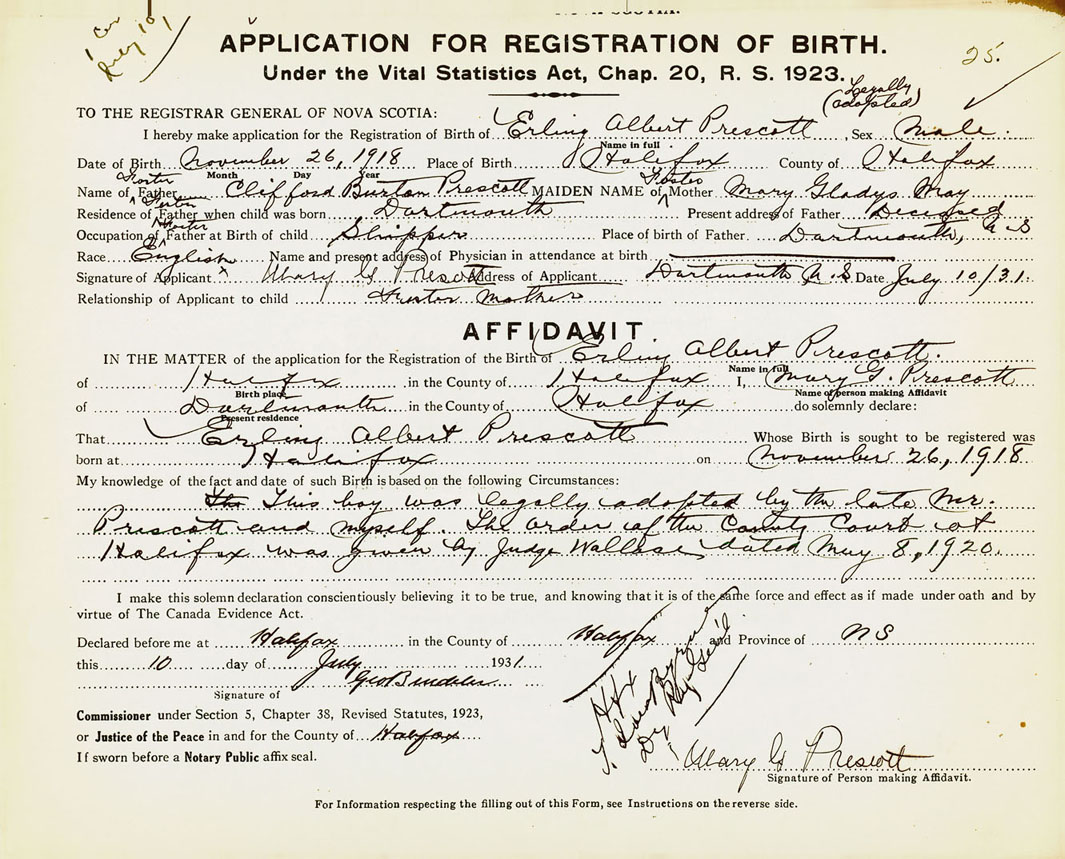 1 Cer
July 10/
APPLICATION FOR REGISTRATION OF BIRTH.
25.
Under the Vital Statistics Act, Chap. 20, R. S. 1923.
Legally
(adopted)
TO THE REGISTRAR GENERAL OF NOVA SCOTIA:
I hereby make application for the Registration of Birth of Erling Albert Prescott, Sex Male.
Name in full
Date of Birth November 26, 1918 Place of Birth Halifax County of Halifax
Month Day Year
Foster Foster
Name of Father Clifford Burton Prescott MAIDEN NAME of Mother Mary Gladys May
Foster
Residence of Father when child was born Dartmouth Present address of Father Deceased
Foster
Occupation of Father at Birth of child Shipper Place of birth of Father. Dartmouth, N S
Race English Name and present address of Physician in attendance at birth
Signature of Applicant x Mary G Prescott Address of Applicant Dartmouth N. S Date July 10/31.
Relationship of Applicant to child Foster Mother
AFFIDAVIT.
IN THE MATTER of the application for the Registration of the Birth of Erling Albert Prescott.
Name in full
of Halifax in the County of Halifax I, Mary G. Prescott
Birth place Name of person making Affidavit
of Dartmouth in the County of Halifax do solemnly declare:
Present residence
That Erling Albert Prescott Whose Birth is sought to be registered was
born at Halifax on November 26, 1918
My knowledge of the fact and date of such Birth is based on the following Circumstances:
This boy was legally adopted by the late Mr.
Prescott and myself. The order of the County Court at
Halifax was given by Judge Wallace dated May 8, 1920.
I make this solemn declaration conscientiously believing it to be true, and knowing that it is of the same force and effect as if made under oath and by
virtue of The Canada Evidence Act.
Declared before me at Halifax in the County of Halifax and Province of N S
this 10 day of July 1931
Signature of
Commissioner under Section 5, Chapter 38, Revised Statutes, 1923,
or Justice of the Peace in and for the County of Halifax
If sworn before a Notary Public affix seal.
Hfx
Dy Reg Gen'l
Mary G Prescott
Signature of Person making Affidavit.
For Information respecting the filling out of this Form, see Instructions on the reverse side.